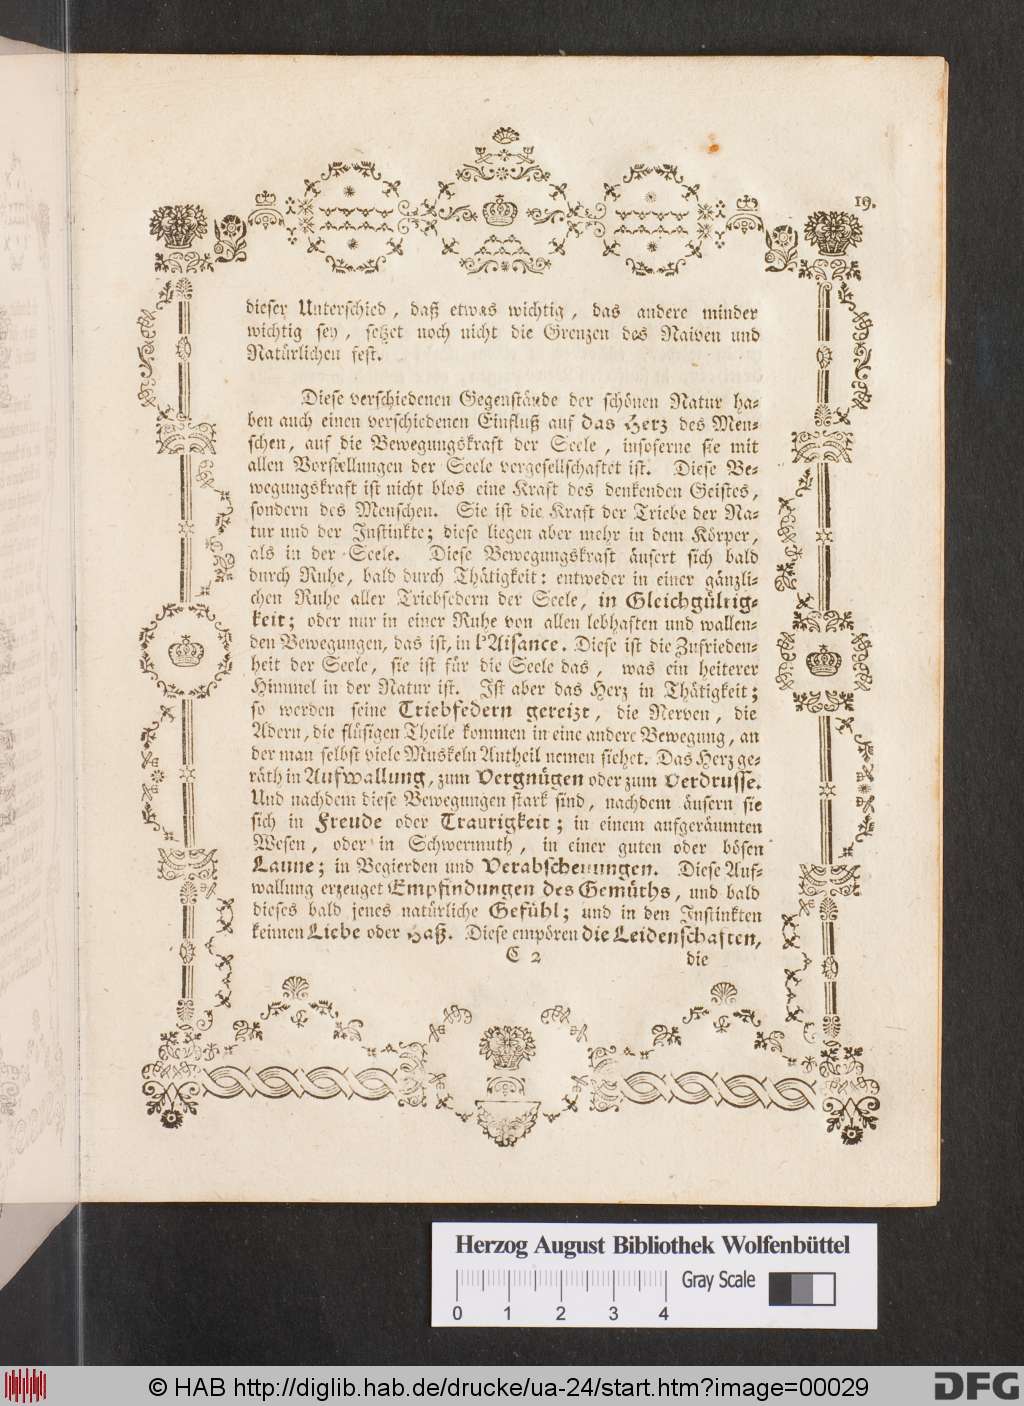 19.
dieser Unterschied, daß etwas wichtig, das andere minder
wichtig sey, setzet noch nicht die Grenzen des Naiven und
Natürlichen fest.
Diese verschiedenen Gegenstände der schönen Natur ha-
ben auch einen verschiedenen Einfluß auf das Herz des Men-
schen, auf die Bewegungskraft der Seele, insoferne sie mit
allen Vorstellungen der Seele vergesellschaftet ist. Diese Be-
wegungskraft ist nicht blos eine Kraft des denkenden Geistes,
sondern des Menschen. Sie ist die Kraft der Triebe der Na-
tur und der Instinkte; diese liegen aber mehr in dem Körper,
als in der Seele. Diese Bewegungskraft äusert sich bald
durch Ruhe, bald durch Thätigkeit: entweder in einer gänzli-
chen Ruhe aller Triebfedern der Seele, in Gleichgültig-
keit; oder nur in einer Ruhe von allen lebhaften und wallen-
den Bewegungen, das ist, in l'Aisance. Diese ist die Zufrieden-
heit der Seele, sie ist für die Seele das, was ein heiterer
Himmel in der Natur ist. Ist aber das Herz in Thätigkeit;
so werden seine Triebfedern gereizt, die Nerven, die
Adern, die flüsigen Theile kommen in eine andere Bewegung, an
der man selbst viele Muskeln Antheil nemen siehet. Das Herz ge-
räth in Aufwallung, zum Vergnügen oder zum Verdrusse.
Und nachdem diese Bewegungen stark sind, nachdem äusern sie
sich in Freude oder Traurigkeit; in einem aufgeräumten
Wesen, oder in Schwermuth, in einer guten oder bösen
Laune; in Begierden und Verabscheuungen. Diese Auf-
wallung erzeuget Empfindungen des Gemüths, und bald
dieses bald jenes natürliche Gefühl; und in den Instinkten
keimen Liebe oder Haß. Diese empören die Leidenschaften,
C 2 die
Herzog August Bibliothek Wolfenbüttel
Gray Scale
0 1 2 3 4
© HAB http://diglib.hab.de/drucke/ua-24/start.htm?image=00029
DFG